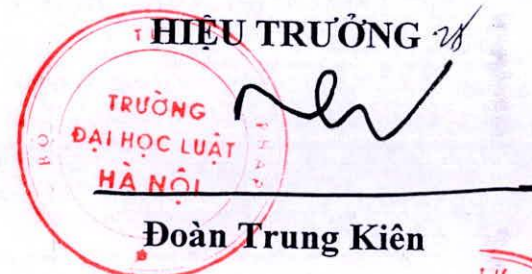 HIỆU TRƯỞNG
TRƯỜNG
ĐẠI HỌC LUẬT
HÀ NỘI
Đoàn Trung Kiên